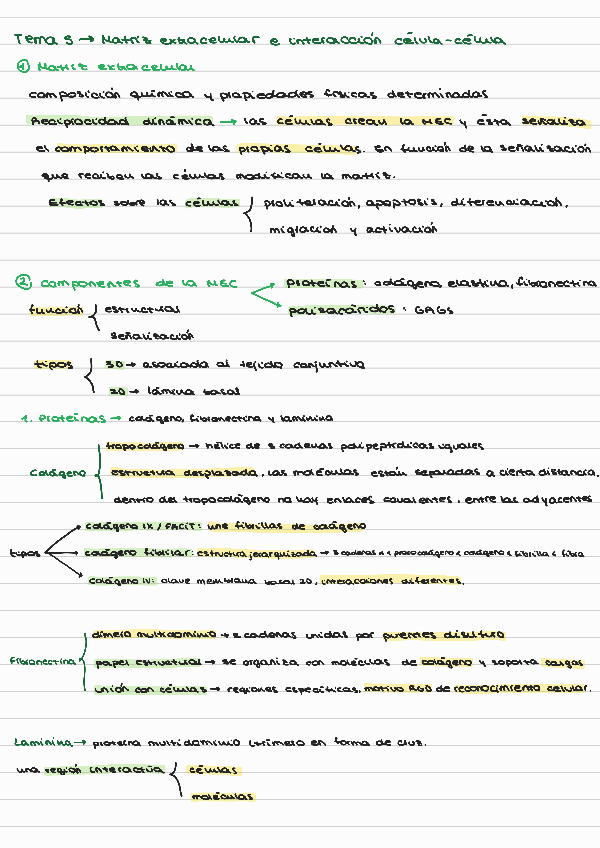 Tema 5 → Matriz extracelular e interacción célula-célula
① Matriz extracelular
composición química y propiedades físicas determinadas
Reciprocidad dinámica → las células crean la MEC y ésta señaliza
el comportamiento de las propias células. En función de la señalización
que reciban las células modifican la matriz.
Efectos sobre las células { proliferación, apoptosis, diferenciación,
migración y activación
② Componentes de la MEC → Proteínas: colágeno, elastina, fibronectina
→ polisacáridos: GAGs
función { estructural
señalización
tipos { 3D → asociada al tejido conjuntivo
2D → lámina basal
1. Proteínas → colágeno, fibronectina y laminina
tropocolágeno → hélice de 3 cadenas polipeptídicas iguales
Colágeno { estructura desplazada, las moléculas están separadas a cierta distancia.
dentro del tropocolágeno no hay enlaces covalentes, entre las adyacentes
colágeno IX / FACIT: une fibrillas de colágeno
tipos colágeno fibrilar: estructura jerarquizada → 3 cadenas α < procolágeno < colágeno < fibrilla < fibra
colágeno IV: clave membrana basal 2D, interacciones diferentes.
dímero multidominio → 2 cadenas unidas por puentes disulfuro
Fibronectina { papel estructural → se organiza con moléculas de colágeno y soporta cargas
unión con células → regiones específicas, motivo RGD de reconocimiento celular.
Laminina → proteína multidominio (trímero en forma de cruz.
una región interactúa { células
moléculas